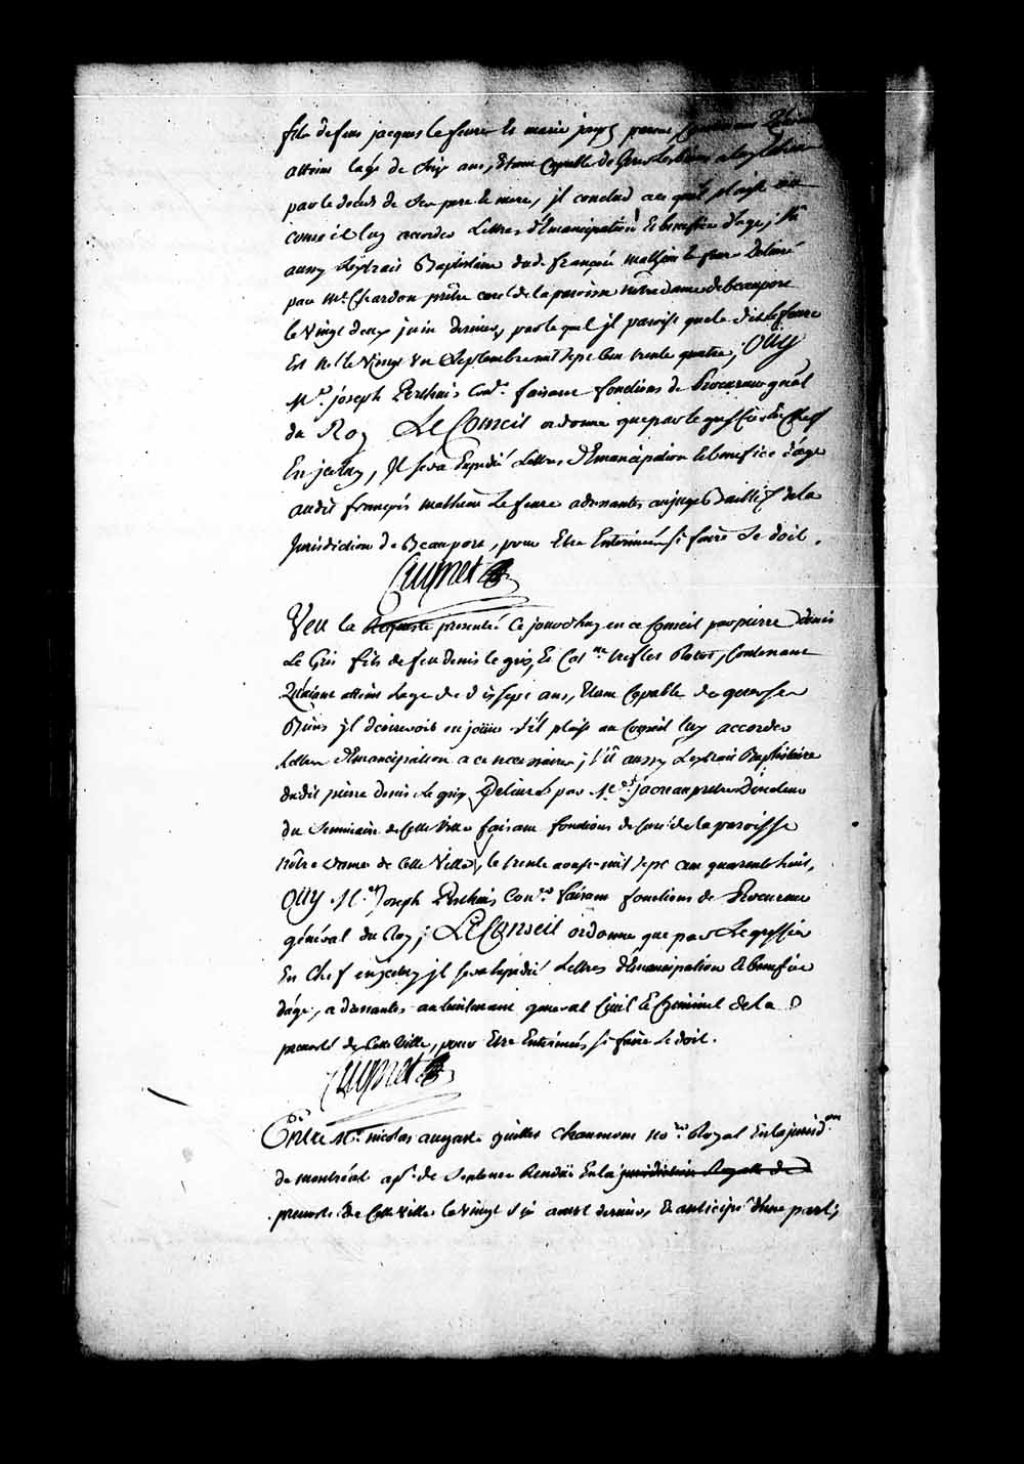 fils de feus jacques le feure et marie
attein lage de ans, Etant Capable de Gerer
par le deces de Ses pere et mere, jl conclud a ce quil plaise au
conseil luy accorder Lettres d'Emancipation et benefice d'age; Vû
aussy L'Extrait Baptistaire dud. françois mathieu le feure Delivré
par Mre. Chardon prêtre curé de la paroisse Nôtre dame de beauport
le vingt deux juin dernier, par lequel jl paroist que le dit Le feure
Est né le Vingt un Septembre mil sept Cent trente quatre, OUY
Me. joseph Perthuis Conr. faisant fonctions de Procureur gnâl
du Roy Le Conseil ordonne que par le greffier en Chef
En jceluy, Jl sera Expedié Lettres d'Emancipation et benefice d'âge
audit françois mathieu Le feure adressantes au juge Baillif de la
Jurisdiction de Beauport, pour Etre Enterinées si faire Se doit.
Cugnet
Veu la Requeste presentée Ce jourdhuy en ce Conseil par pierre denis
Le Gris fils de feu denis le gris, Et Contenant
attein Lage de dissept ans, Etant Capable de gerer Ses
Biens
Lettres d'Emancipation a ce necessaires; Vû aussy L'extrait Baptistaire
dudit pierre denis Le gris, Delivré par Mre. jacreau pretre Directeur
du Seminaire de Cette Ville faisant fonctions de Curé de la paroisse
nôtre Dame de Cette Ville, le trente aoust mil sept cent quarente huit,
OUY Me. Joseph Perthuis Conr. faisant fonctions de Procureur
général du Roy; LE Conseil ordonne que par Le greffier
En Chef en jceluy jl sera Expedié Lettres d'Emancipation et benefice
d'âge, adressantes au Lieutenant general Civil et Criminel de la
prevosté de Cette Ville, pour Etre Enterinées si faire Se doit.
Cugnet
Entre Me. nicolas auguste guillet Chaumont nore. Royal En la jurisd.on
de montréal apt. de Sentence Rendüe En la jurisdiction Royalle de
prevosté de Cette Ville le Vingt Six aoust dernier, et anticipé d'une part;